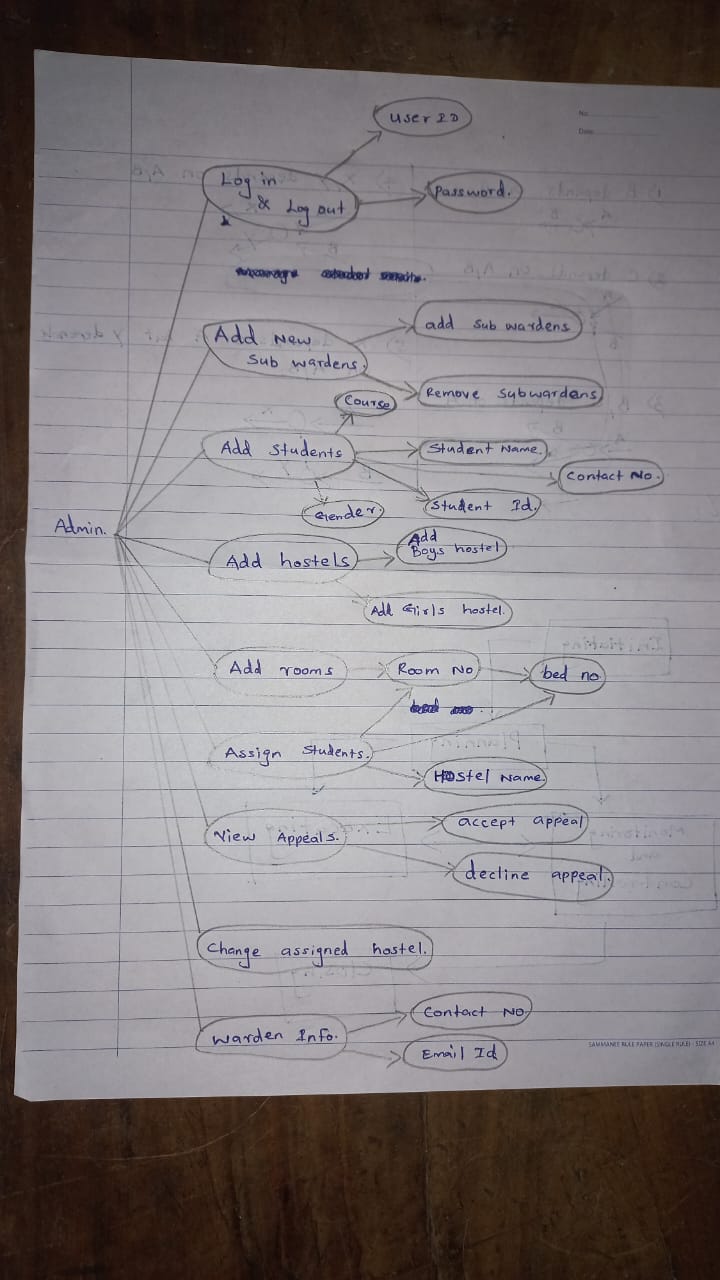 No:
Date:
User ID
Log in
& Log out
Password.
Add New
Sub wardens.
add Sub wardens
Remove Subwardens
Course
Add Students
Student Name.
Contact No.
Student Id.
Gender.
Admin.
Add hostels
Add
Boys hostel
Add Girls hostel.
Add rooms
Room No
bed no
Assign Students.
Hostel Name
View Appeals.
accept appeal
decline appeal.
Change assigned hostel.
Warden Info.
Contact No
Email Id
SAMMANEE RULE PAPER (SINGLE RULE) - SIZE A4